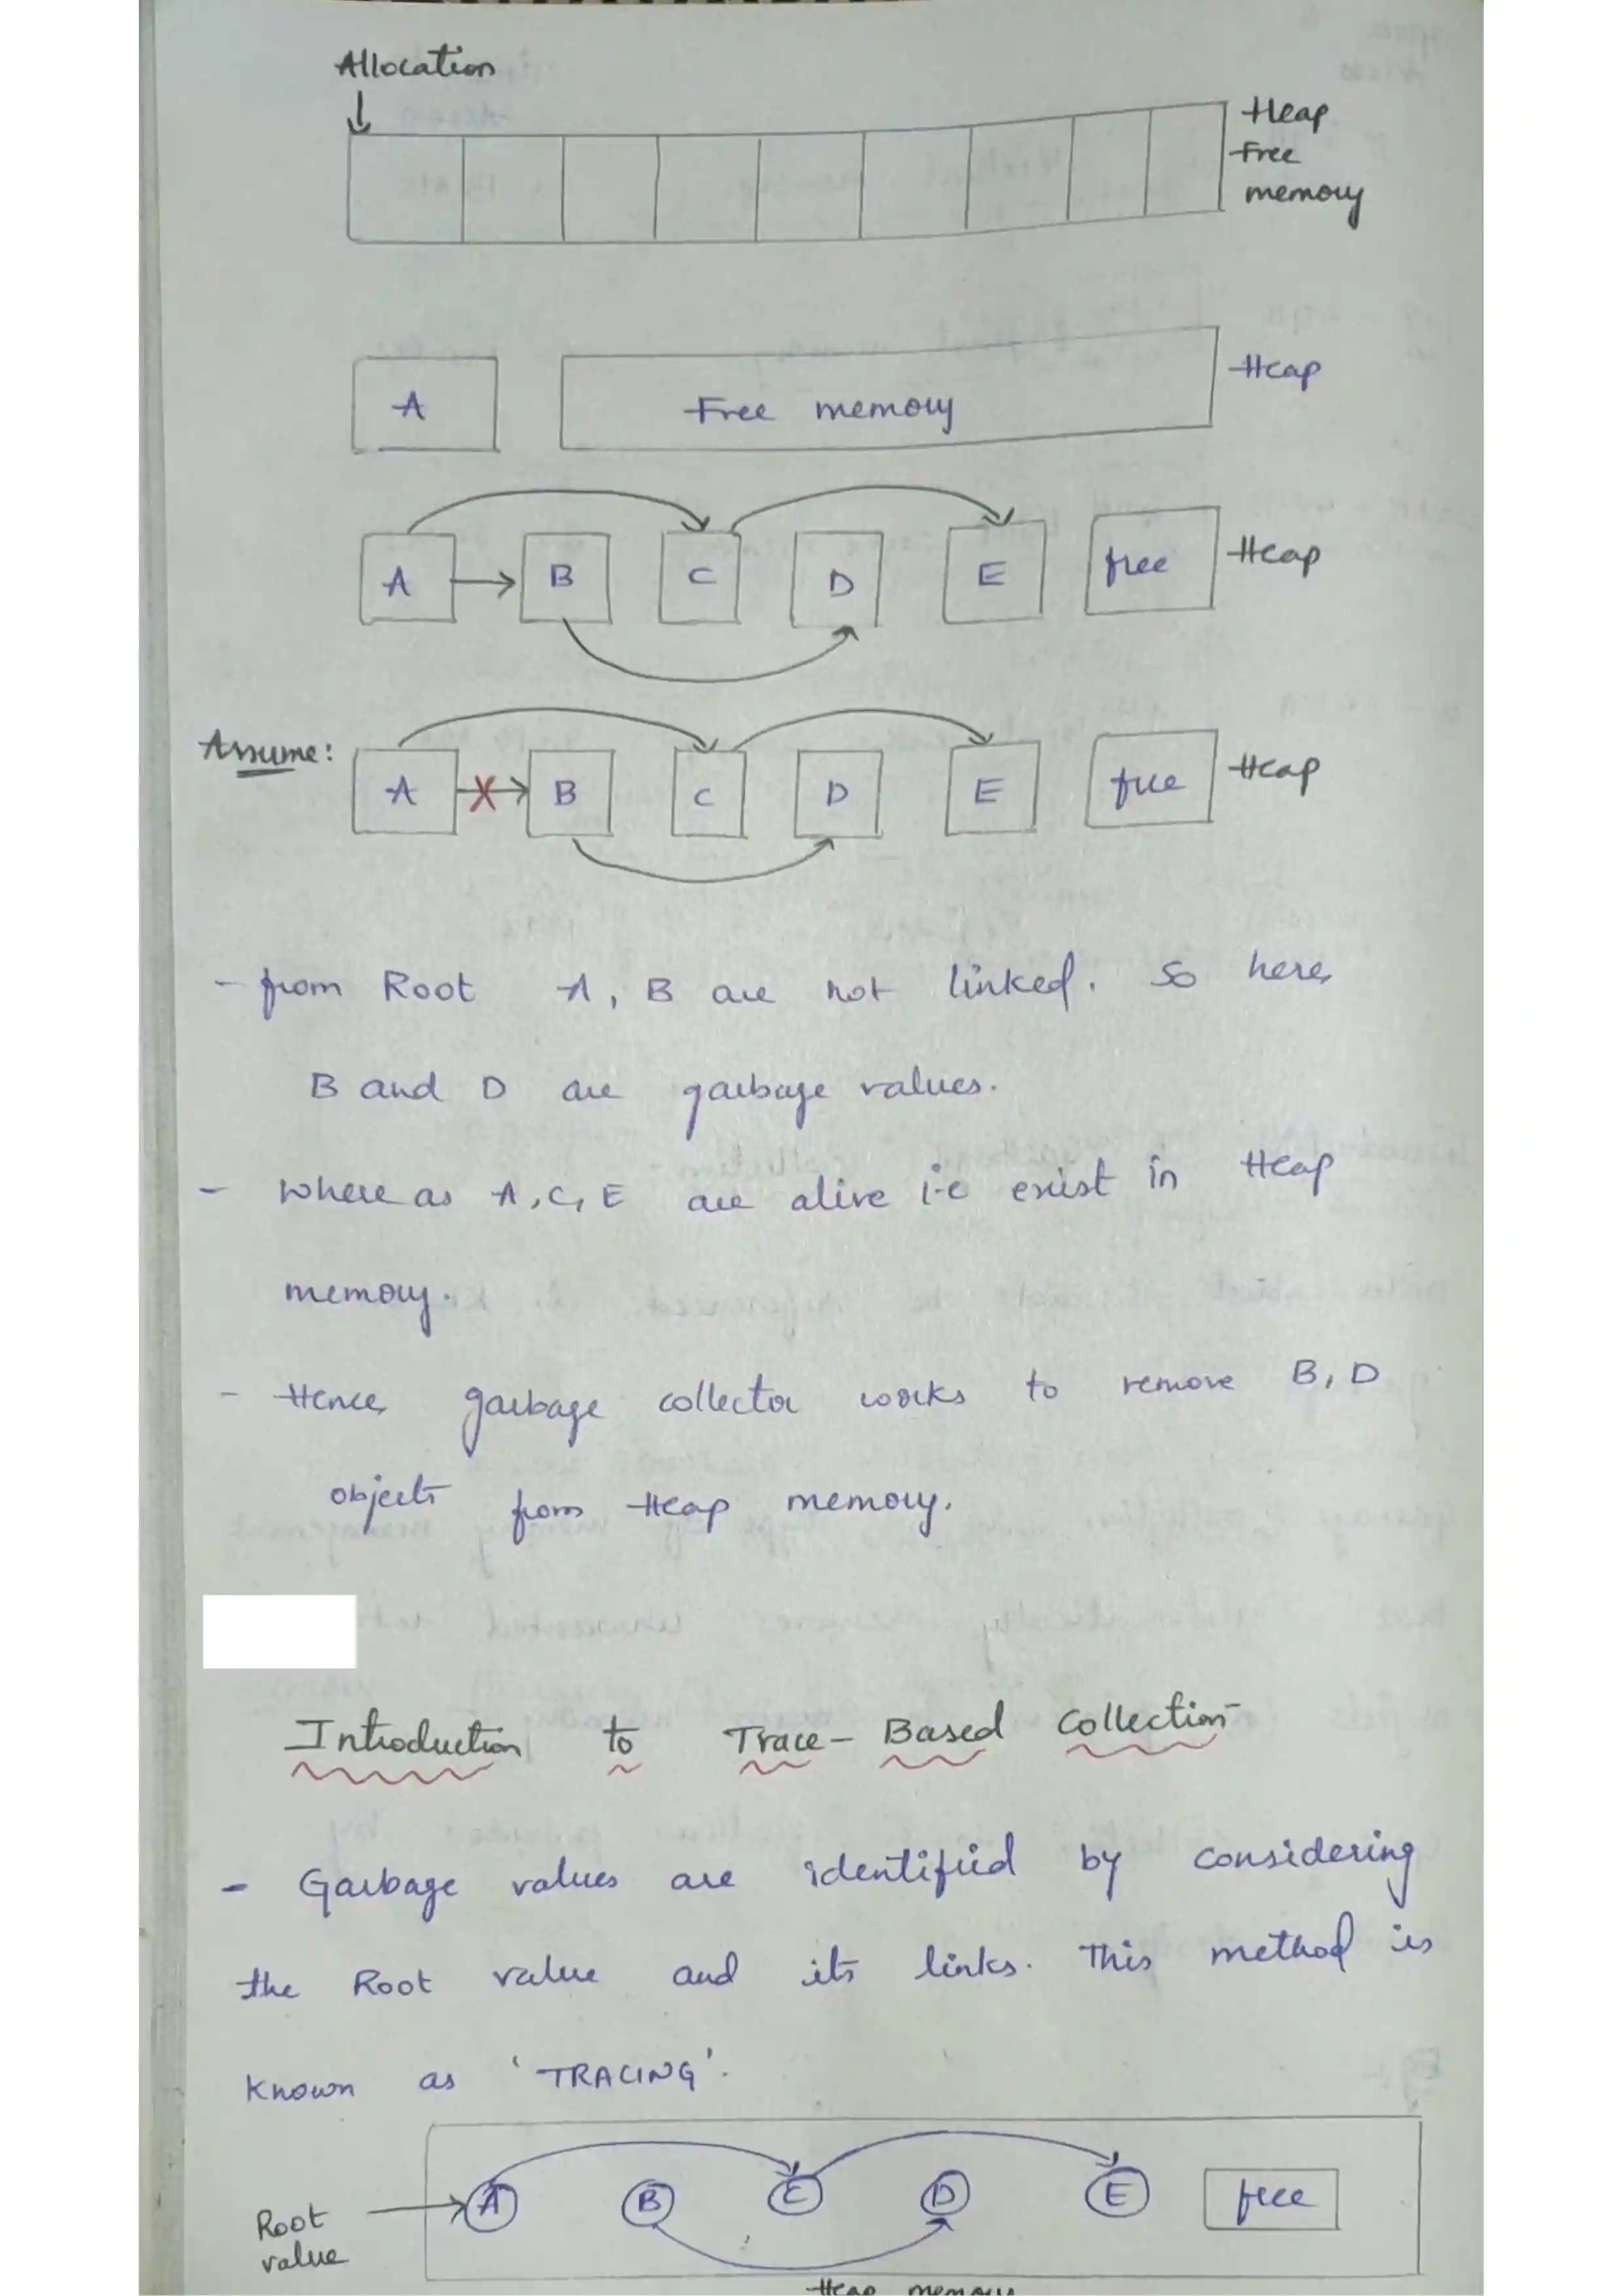 Allocation
Heap
Free
memory
A
Free memory
Heap
A B C D E free Heap
Assume:
A X B C D E free Heap
- from Root A, B are not linked. So here,
B and D are garbage values.
- where as A, C, E are alive i.e exist in Heap
memory.
- Hence, garbage collector works to remove B, D
objects from Heap memory.
Introduction to Trace-Based Collection
- Garbage values are identified by considering
the Root value and its links. This method is
known as 'TRACING'.
Root
value
A B C D E free
Heap memory